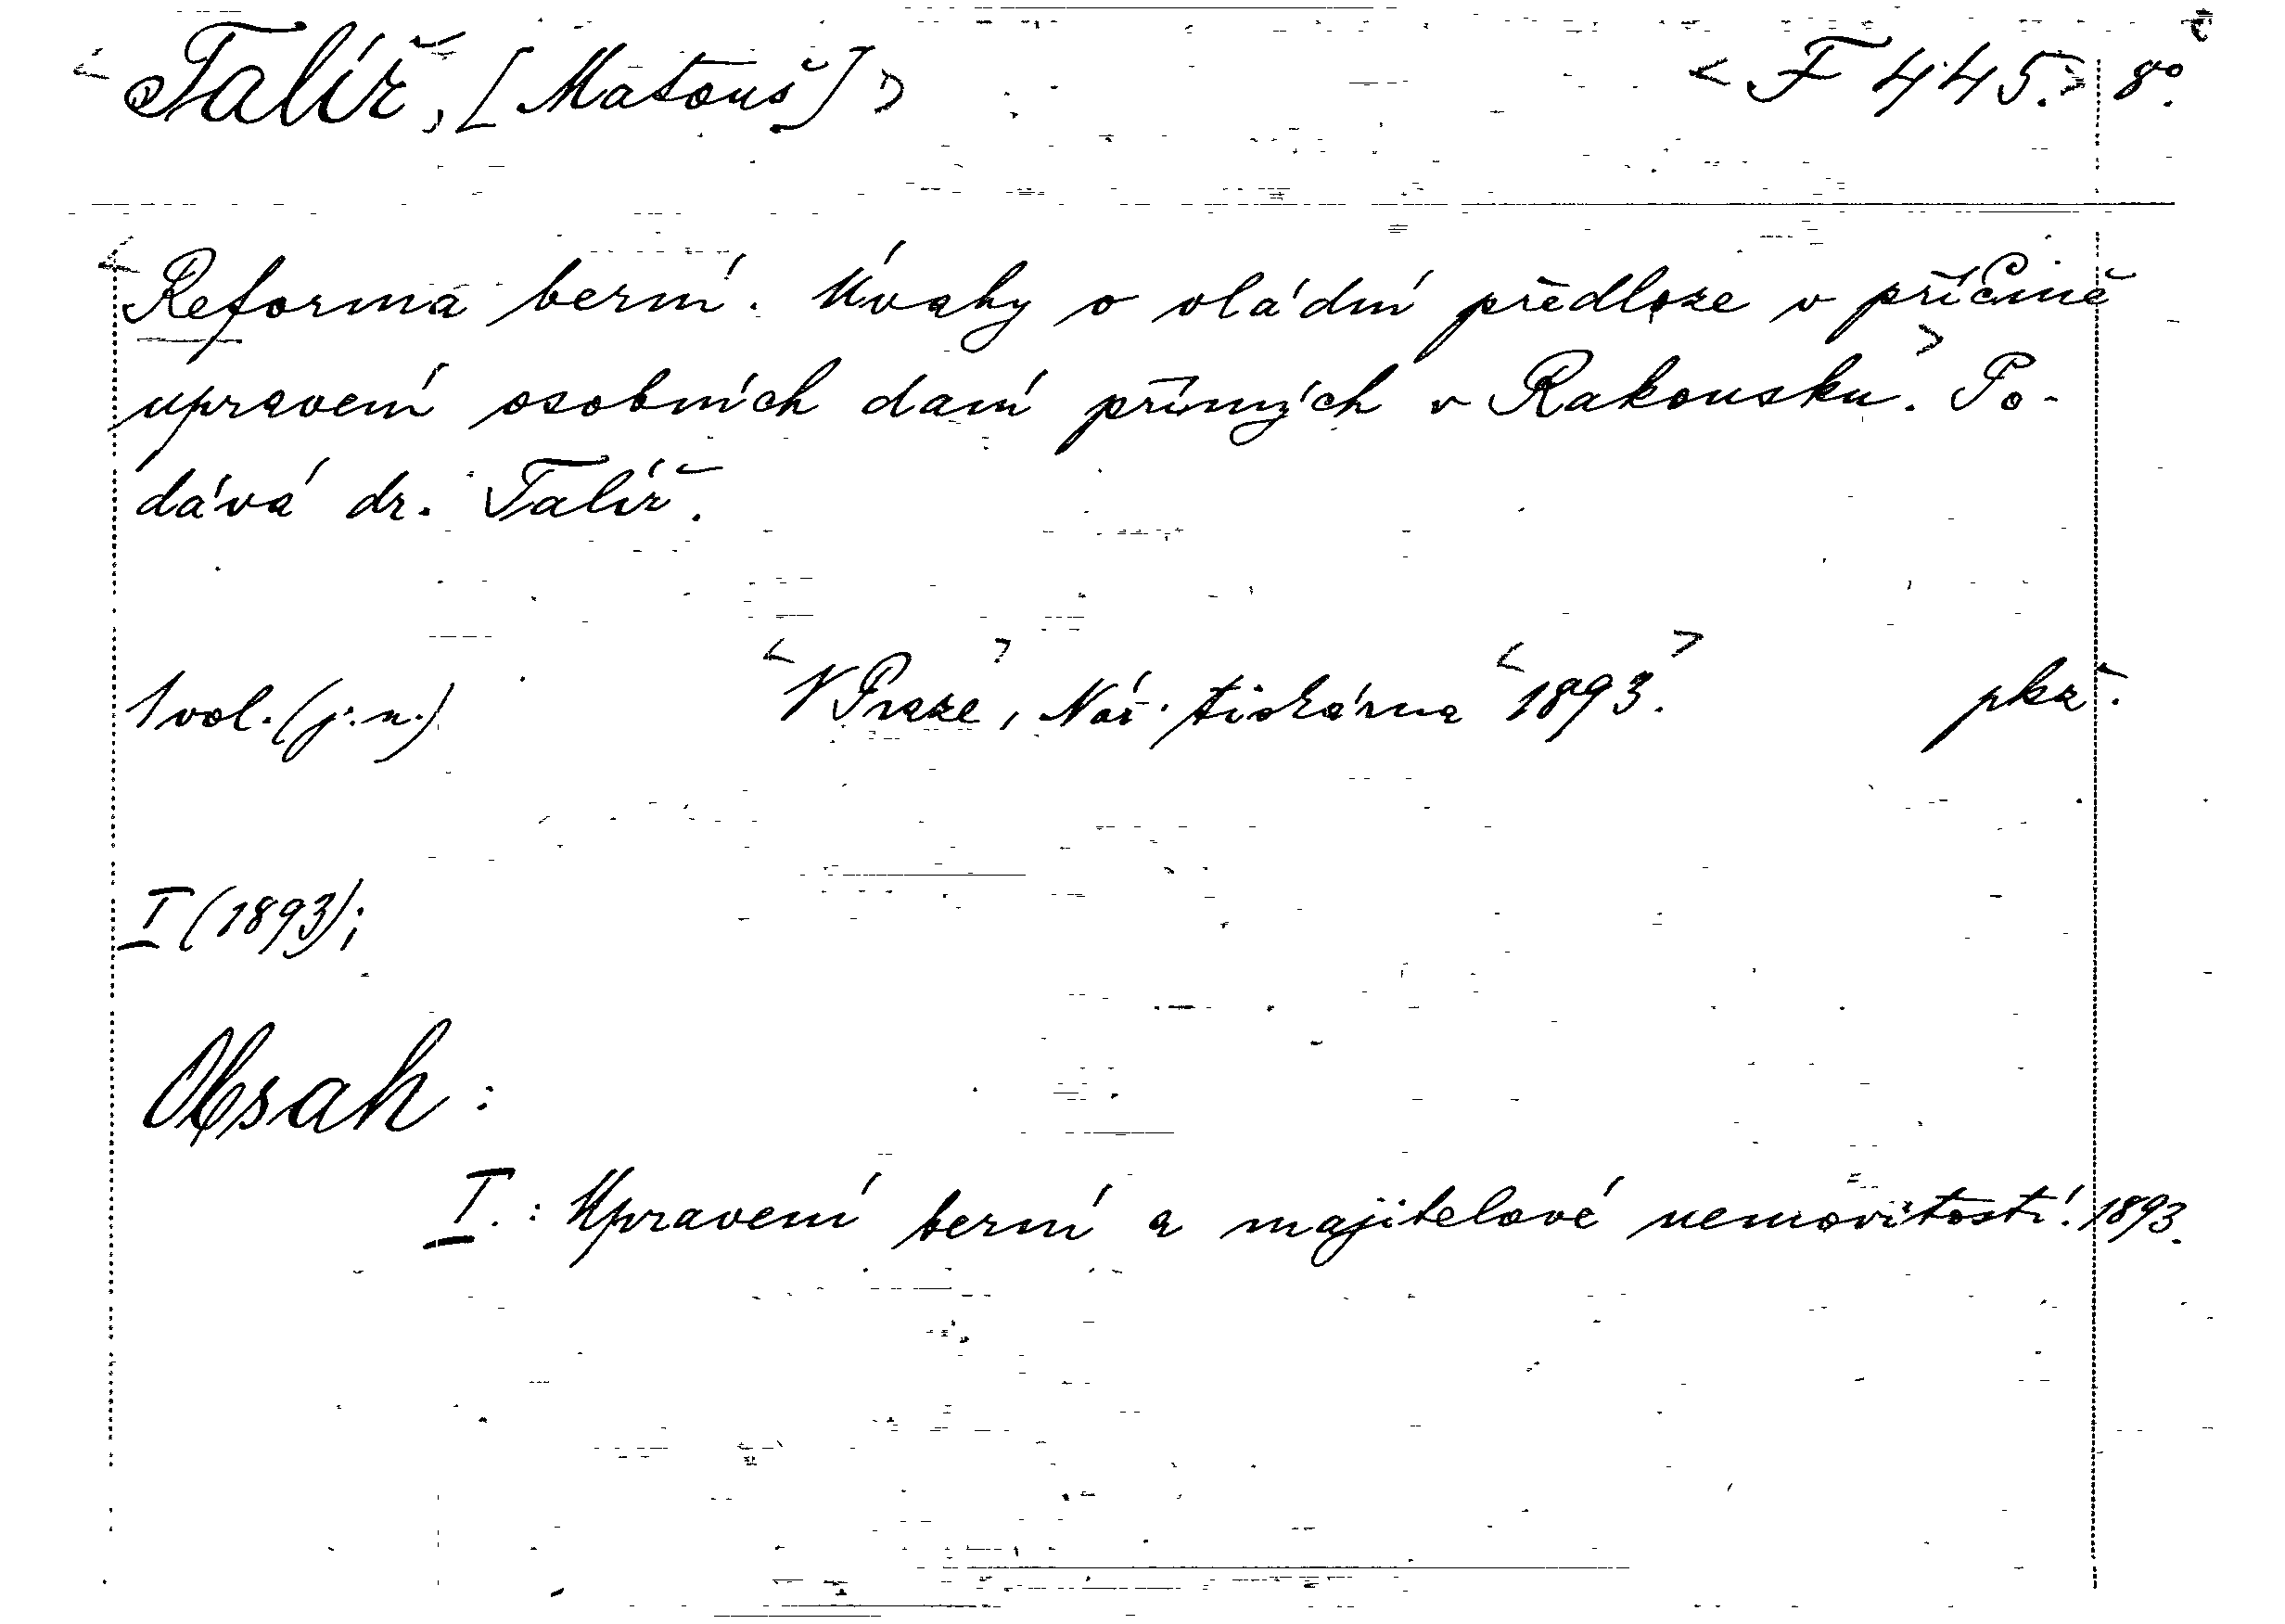 <Talíř, [Matouš]> <F 445.> 8°.
<Reforma berní. Úvahy o vládní předloze v příčině
upravení osobních daní přímých v Rakousku.> Po-
dává dr. Talíř.
1 vol. (j. n.) <V Praze>, Nár. tiskárna <1893.> pkř.
I (1893);
Obsah:
I.: Upravení berní a majitelové nemovitostí. 1893.